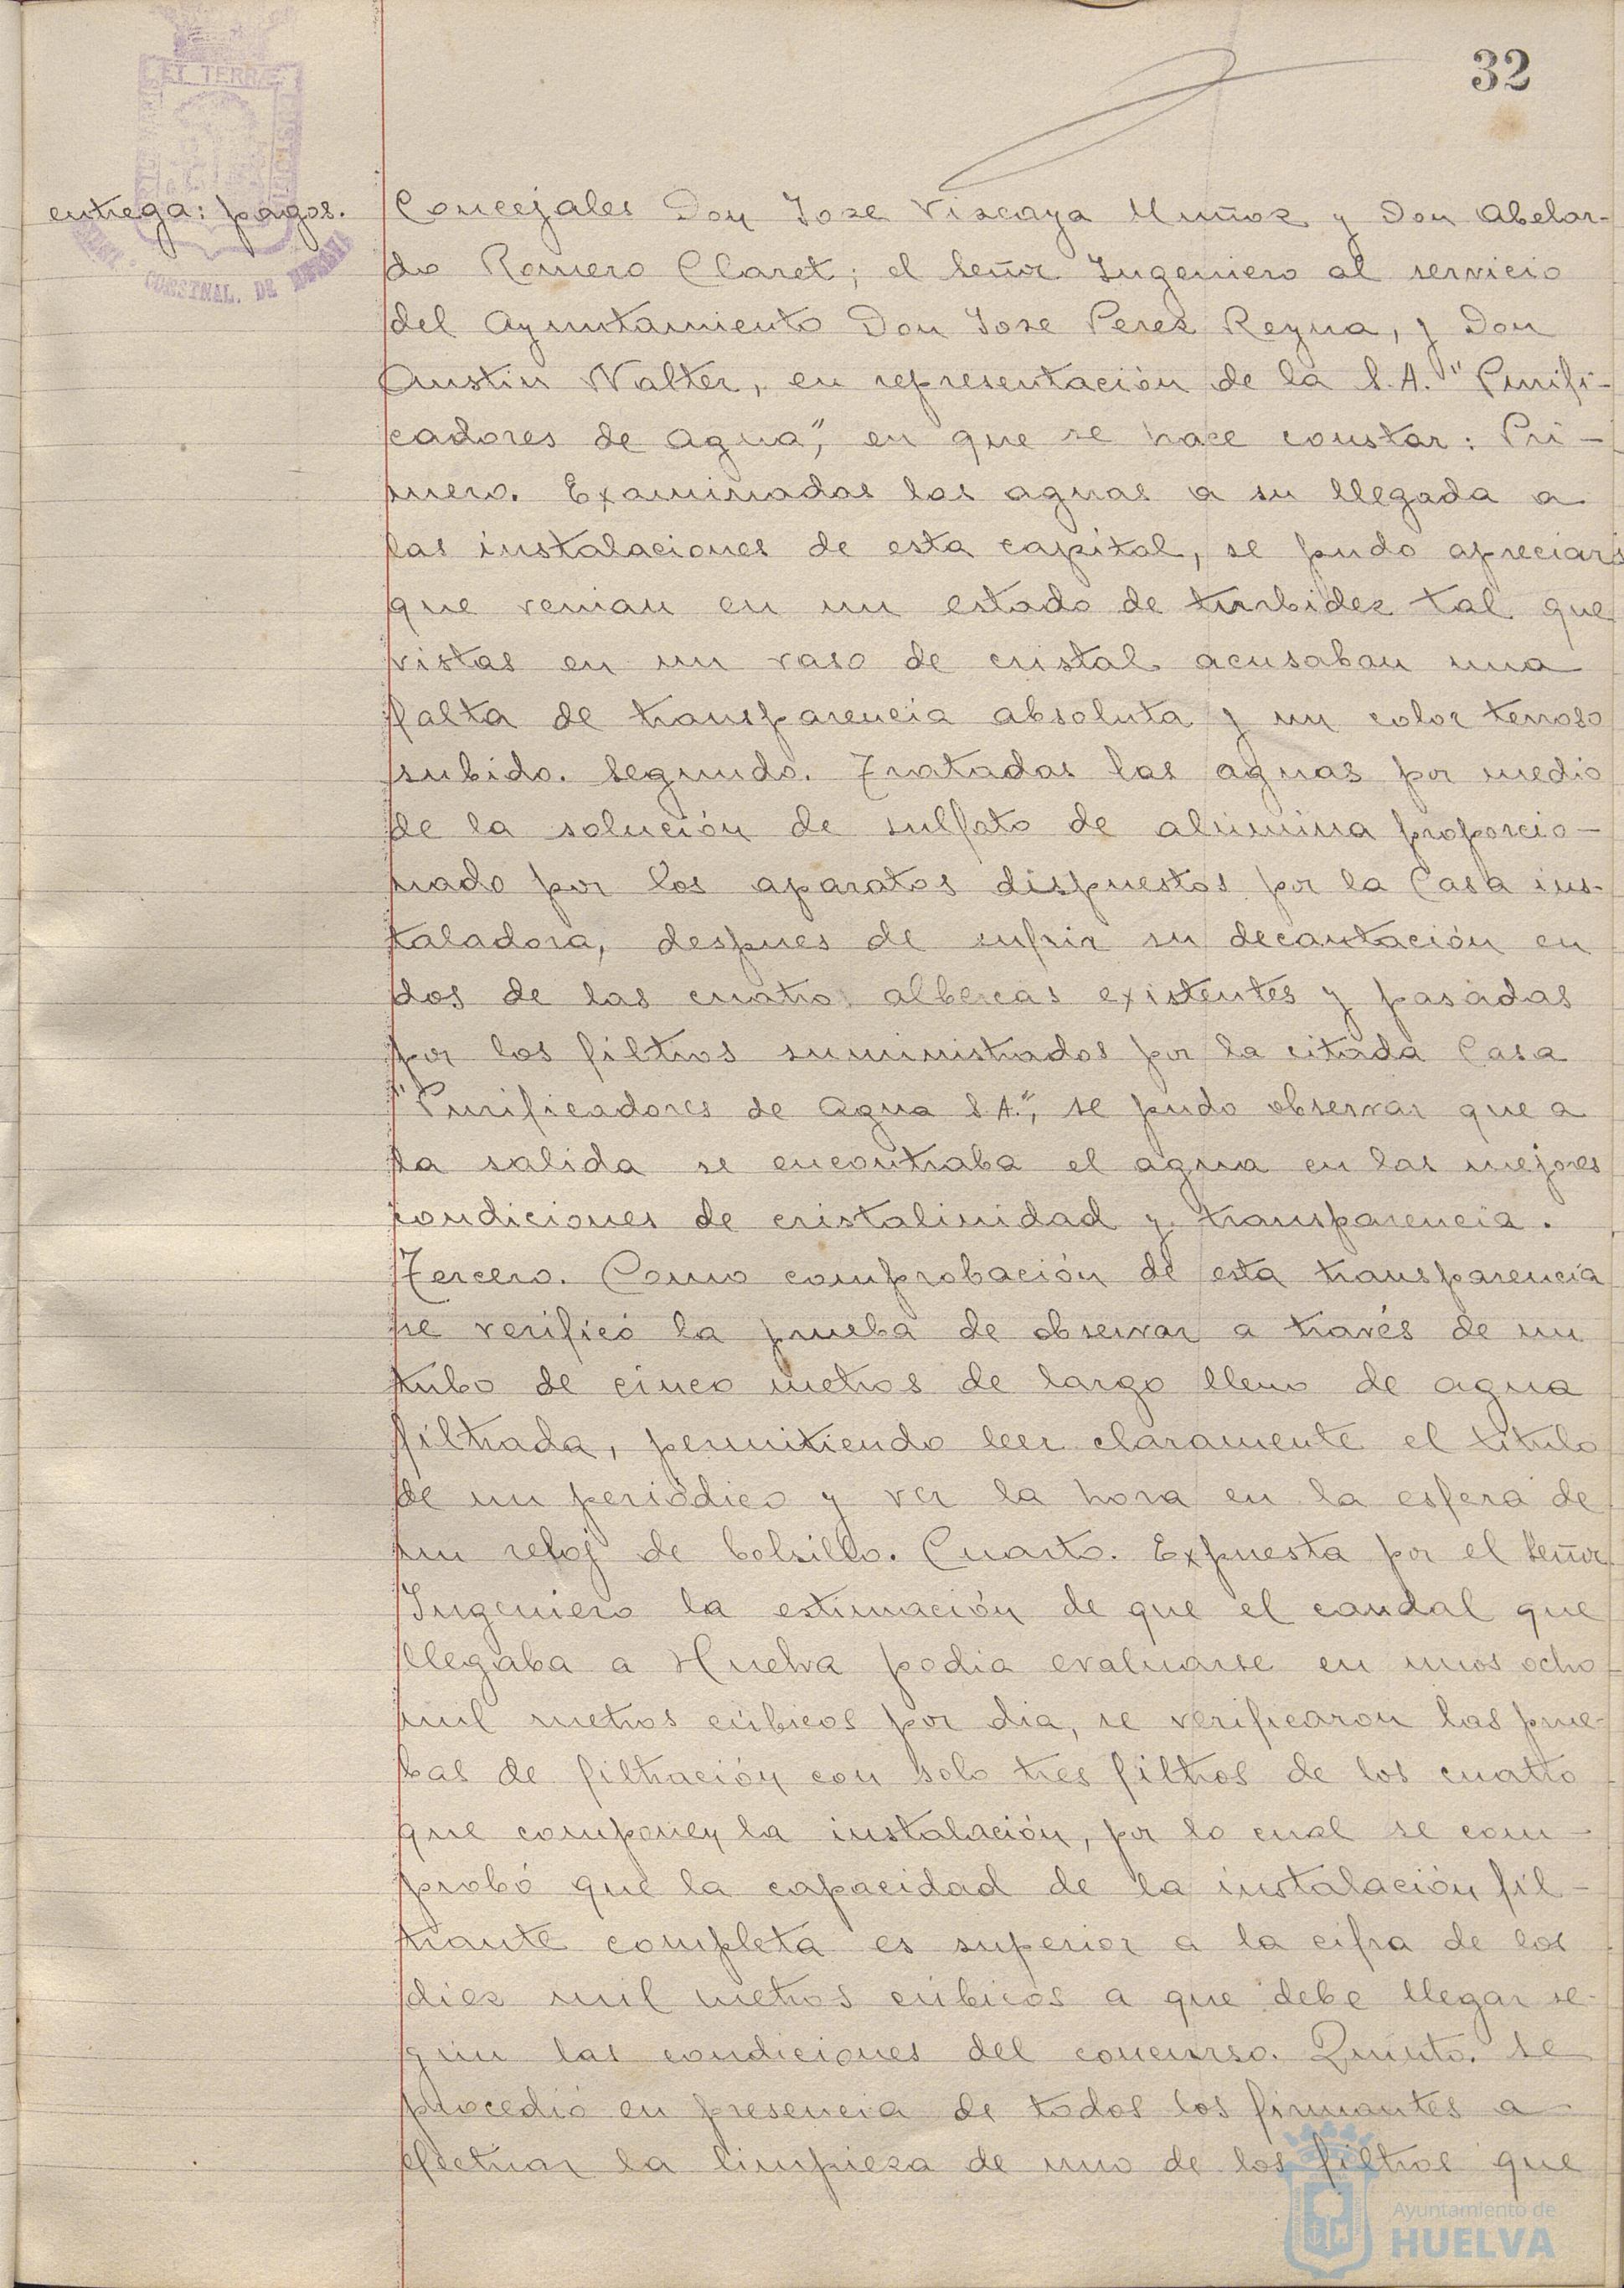 32
ET TERRÆ
CONSTNAL. DE HUELVA
entrega: pagos.
Concejales Don Jose Viscaya Muñoz y Don Abelar-
do Romero Claret; el Señor Ingeniero al servicio
del Ayuntamiento Don Jose Perez Reyna, y Don
Austin Walter, en representación de la S.A. "Purifi-
cadores de agua", en que se hace constar: Pri-
mero. Examinadas las aguas a su llegada a
las instalaciones de esta capital, se pudo apreciar
que venian en un estado de turbidez tal que
vistas en un vaso de cristal acusaban una
falta de transparencia absoluta y un color terroso
subido. Segundo. Tratadas las aguas por medio
de la solución de sulfato de alumina proporcio-
nado por los aparatos dispuestos por la Casa ins-
taladora, despues de sufrir su decantación en
dos de las cuatro albercas existentes y pasadas
por los filtros suministrados por la citada Casa
"Purificadores de Agua S.A.", se pudo observar que a
la salida se encontraba el agua en las mejores
condiciones de cristalinidad y transparencia.
Tercero. Como comprobación de esta transparencia
se verificó la prueba de observar a través de un
tubo de cinco metros de largo lleno de agua
filtrada, permitiendo leer claramente el titulo
de un periódico y ver la hora en la esfera de
un reloj de bolsillo. Cuarto. Expuesta por el Señor
Ingeniero la estimación de que el caudal que
llegaba a Huelva podia evaluarse en unos ocho
mil metros cúbicos por dia, se verificaron las prue-
bas de filtración con solo tres filtros de los cuatro
que componen la instalación, por lo cual se com-
probó que la capacidad de la instalación fil-
trante completa es superior a la cifra de los
diez mil metros cúbicos a que debe llegar se-
gún las condiciones del concurso. Quinto. Se
procedió en presencia de todos los firmantes a
efectuar la limpieza de uno de los filtros que
Ayuntamiento de
HUELVA